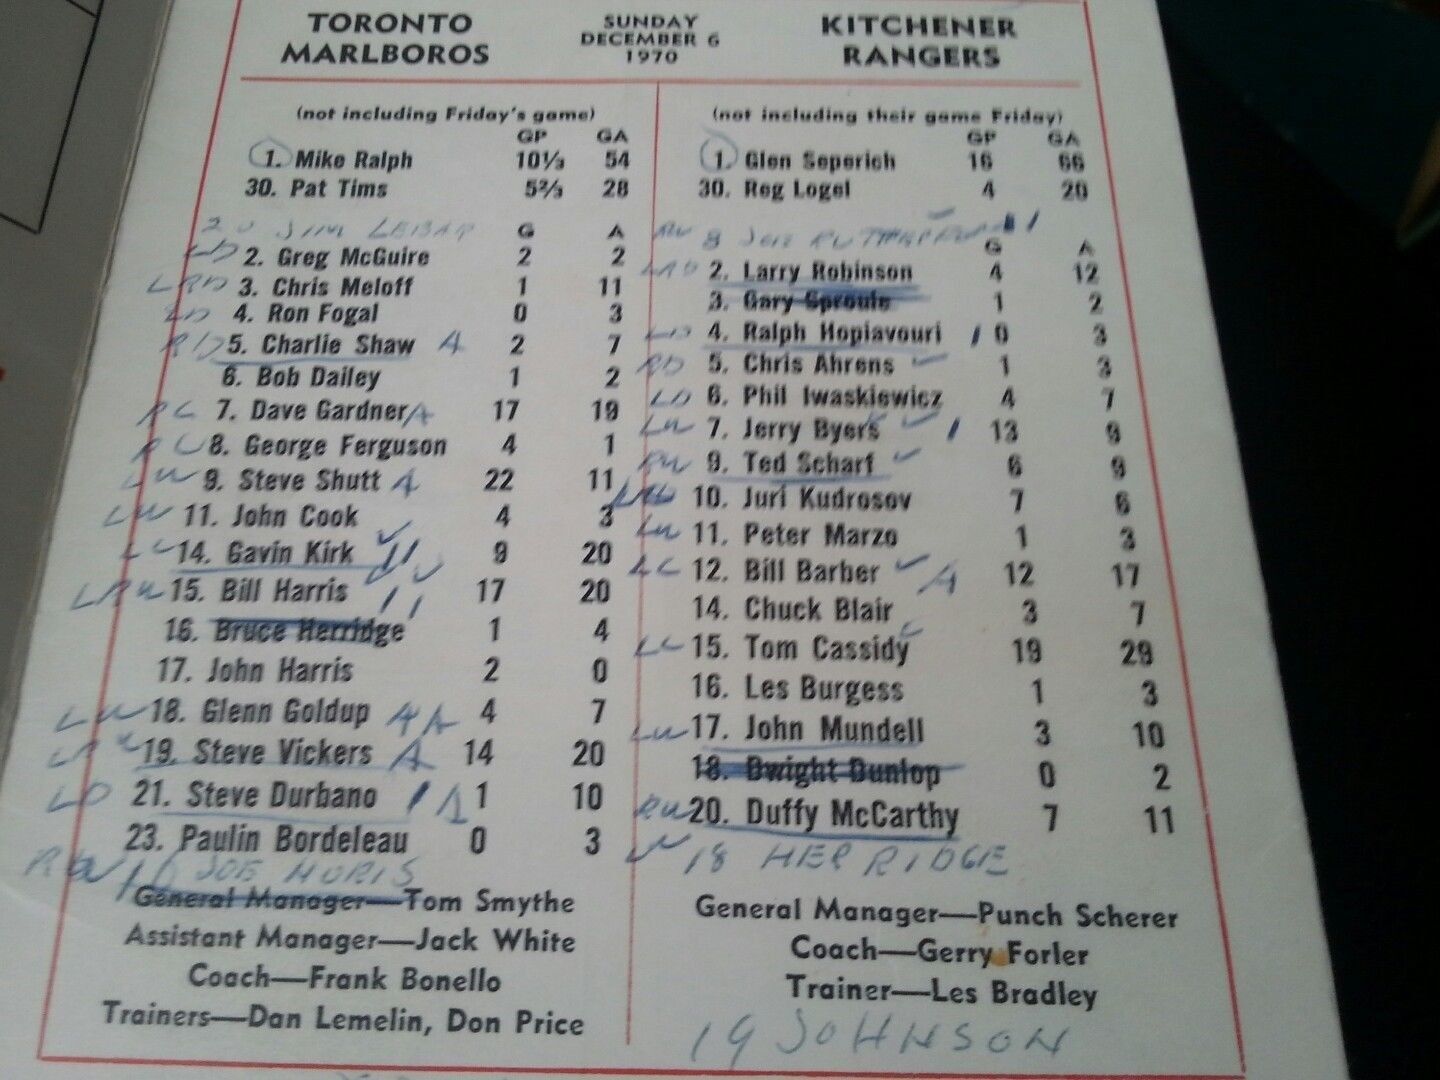 TORONTO MARLBOROS
SUNDAY DECEMBER 6 1970
KITCHENER RANGERS
(not including Friday's game)
GP GA
1. Mike Ralph 10⅓ 54
30. Pat Tims 5⅔ 28
20 JIM LEBAR
G A
LD 2. Greg McGuire 2 2
LRD 3. Chris Meloff 1 11
LD 4. Ron Fogal 0 3
RD 5. Charlie Shaw A 2 7
6. Bob Dailey 1 2
RC 7. Dave Gardner A 17 19
RC 8. George Ferguson 4 1
LW 9. Steve Shutt A 22 11
LW 11. John Cook 4 3
LC 14. Gavin Kirk 9 20
LRW 15. Bill Harris 17 20
16. Bruce Herridge 1 4
17. John Harris 2 0
LW 18. Glenn Goldup AA 4 7
19. Steve Vickers A 14 20
LD 21. Steve Durbano 1 A 1 10
23. Paulin Bordeleau 0 3
RW 16 JOE NORIS
General Manager—Tom Smythe
Assistant Manager—Jack White
Coach—Frank Bonello
Trainers—Dan Lemelin, Don Price
(not including their game Friday)
GP GA
1. Glen Seperich 16 66
30. Reg Logel 4 20
RW 8 1
G A
LRD 2. Larry Robinson 4 12
3. Gary Sproule 1 2
LD 4. Ralph Hopiavouri 1 0 3
RD 5. Chris Ahrens 1 3
LD 6. Phil Iwaskiewicz 4 7
LW 7. Jerry Byers 1 13 9
RW 9. Ted Scharf 6 9
10. Juri Kudrasov 7 6
LW 11. Peter Marzo 1 3
LC 12. Bill Barber A 12 17
14. Chuck Blair 3 7
LC 15. Tom Cassidy 19 29
16. Les Burgess 1 3
LW 17. John Mundell 3 10
18. Dwight Dunlop 0 2
RW 20. Duffy McCarthy 7 11
18 HERRIDGE
General Manager—Punch Scherer
Coach—Gerry Forler
Trainer—Les Bradley
19 JOHNSON